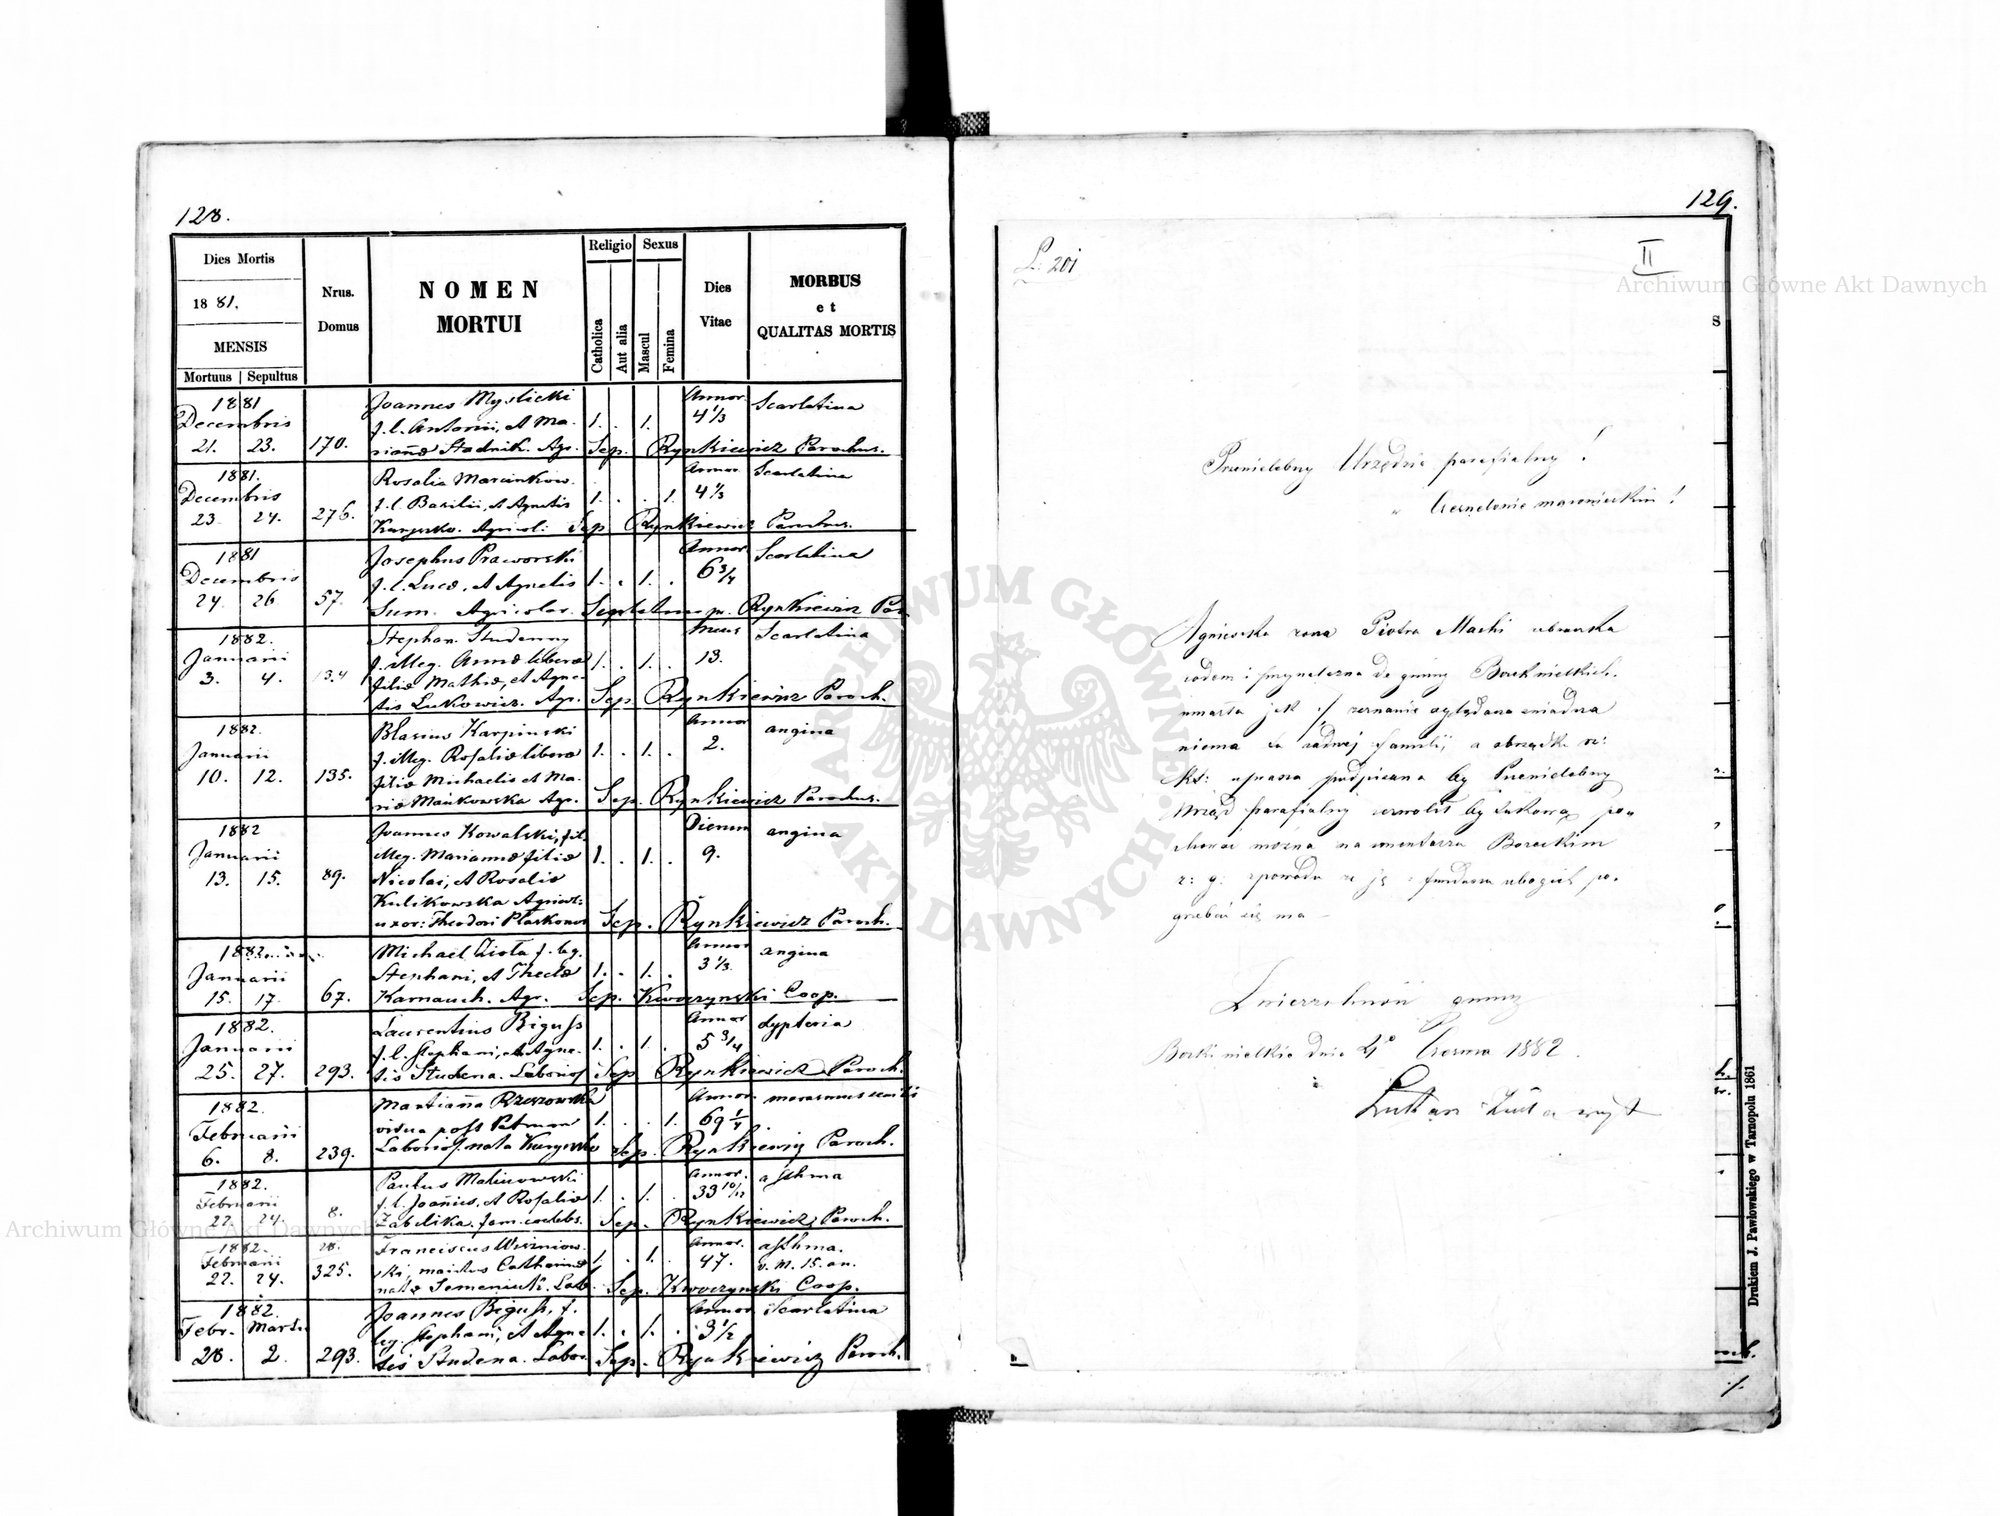 128.
Dies Mortis
18 81.
MENSIS
Mortuus | Sepultus
Nrus.
Domus
NOMEN
MORTUI
Religio
Catholica
Aut alia
Sexus
Mascul
Femina
Dies
Vitae
MORBUS
et
QUALITAS MORTIS
1881
Decembris
21. 23. 170.
Joannes Myslicki
f. l. Antonii, et Ma-
rianæ Stadnik. Agr.
1. . 1.
Annor.
4 1/3
Scarlatina
Sep. Rynkiewicz Parochus.
1881.
Decembris
23. 24. 276.
Rosalia Marcinkow.
f. l. Basilii, et Agnetis
Agricol:
1. . . 1.
Annor.
4 1/3
Scarlatina
Sep. Rynkiewicz Parochus.
1881
Decembris
24. 26 57.
Josephus Praworski
f. l. Lucæ, et Agnetis
Sum. Agricolar.
1. . 1. .
Annor
6 3/4
Scarlatina
Rynkiewicz Par.
1882.
Januarii
3. 4. 134
Stephan. Studenny
f. illeg. Annæ liberæ
filiæ Mathiæ, et Agne-
tis Lukowicz. Agr.
1. . 1. .
13.
Scarlatina
Sep. Rynkiewicz Paroch.
1882.
Januarii
10. 12. 135.
Blasius Karpinski
f. illeg. Rosaliæ liberæ
filiæ Michaelis et Ma-
riæ Mańkowska Agr.
1. . 1. .
Annor
2.
angina
Sep. Rynkiewicz Parochus.
1882
Januarii
13. 15. 89.
Joannes Kowalski, fil.
illeg. Mariannæ filiæ
Nicolai, et Rosaliæ
Kulikowska
uxor: Theodori
1. . 1. .
Dierum
9.
angina
Sep. Rynkiewicz Paroch.
1882
Januarii
15. 17. 67.
Michael f. leg.
Stephani, et Theclæ
Karnauch. Agr.
1. . 1. .
Annor
3 1/3.
angina
Sep. Kwoczynski Coop.
1882.
Januarii
25. 27. 293.
Laurentius Biguss
f. l. Stephani, et Agne-
tis Studena. Laborios
1. . 1. .
Annor
5 3/4
dypteria
Sep. Rynkiewicz Paroch.
1882.
Februarii
6. 8. 239.
Marianna Rzeszowska
vidua post
Laborios. nata
1. . . 1.
Annor.
69 1/4
marasmus senilis
Sep. Rynkiewicz Paroch.
1882.
Februarii
22. 24. 8.
Paulus Malinowski
f. l. Joannis, et Rosaliæ
Zabelika. fam. coelebs.
1. . 1. .
Annor.
33 10/12
asthma
Sep. Rynkiewicz Paroch.
1882.
Februarii
22. 24. 325.
Franciscus Wiszniow-
ski, maritus Catharinæ
natæ Semeniuk. Lab.
1. . 1. .
Annor.
47.
asthma.
v. M. 15. an.
Sep. Kwoczynski Coop.
1882.
Febr. Martii
28. 2. 293.
Joannes Biguss, f.
leg. Stephani, et Agne-
tis Studena. Labor.
1. . 1. .
Annor
3 1/2
Scarlatina
Sep. Rynkiewicz Paroch.
129.
L. 201
II
S
Przewielebny Urzędzie parafialny!
w Czernelowie mazowieckim!
Agnieszka żona Piotra Machi
rodem i przynależna do gminy Borek wielkich.
umarła jak
niema tu żadnej familii, a obrządku rz:
kt: uprasza podpisana by Przewielebny
Urząd parafialny zezwolił by takową po-
chować można na cmentarzu Boreckim
r: g: zpowodu że ją z funduszu ubogich po-
grzebać się ma
Zwierzchność gminy
Borki wielkie dnia 4go Czerwca 1882.
wójt
Drukiem J. Pawłowskiego w Tarnopolu 1861
Archiwum Główne Akt Dawnych
Archiwum Główne Akt Dawnych
ARCHIWUM GŁÓWNE
AKT DAWNYCH